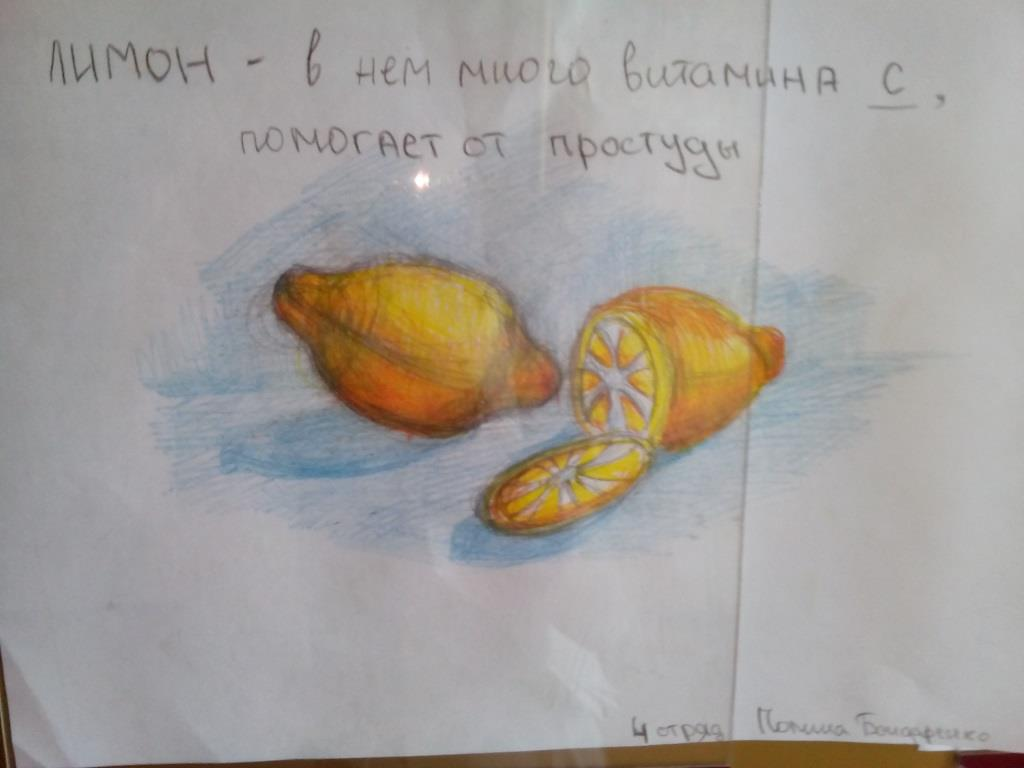 ЛИМОН - в нем много витамина С,
помогает от простуды
4 отряд Полина Бондаренко